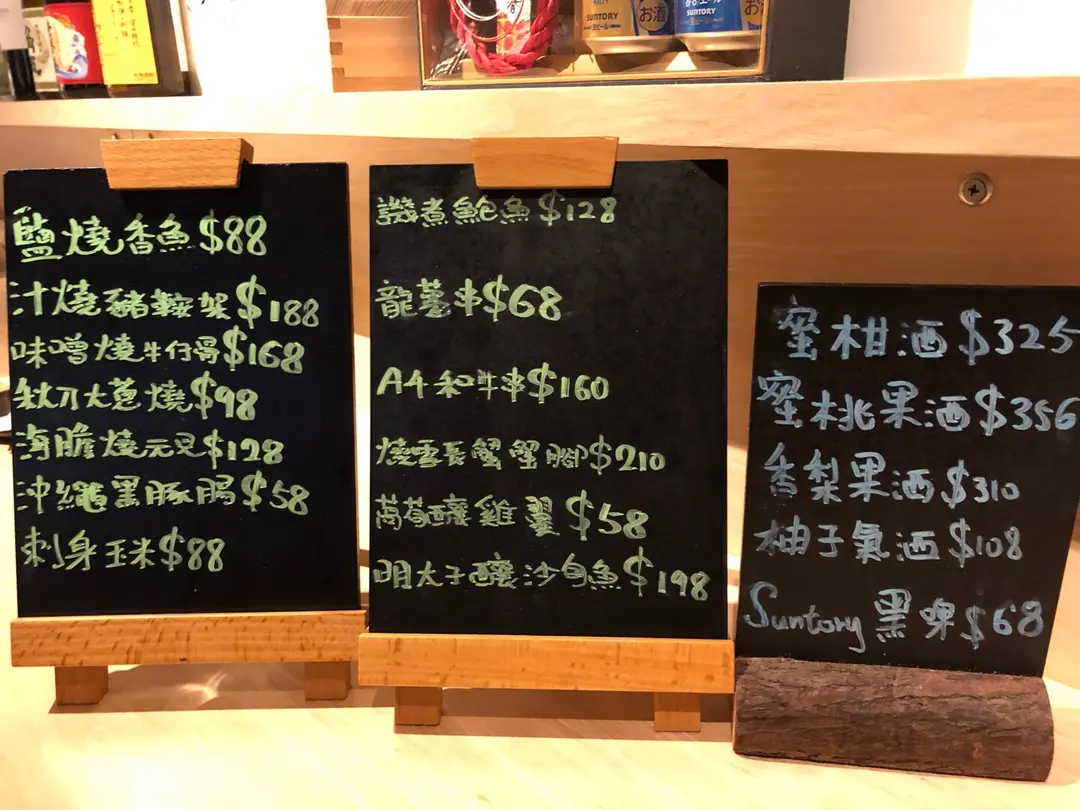 SUNTORY
お酒
SUNTORY
お酒
鹽燒香魚$88
汁燒豬鞍架$188
味噌燒牛仔骨$168
秋刀大蔥燒$98
海膽燒元貝$128
沖繩黑豚腸$58
刺身玉米$88
煮鮑魚$128
龍蔥串$68
A4和牛串$160
燒雪長蟹蟹腳$210
釀雞翼$58
明太子釀沙甸魚$198
蜜柑酒$325
蜜桃果酒$356
香梨果酒$310
柚子氣酒$108
Suntory黑啤$68